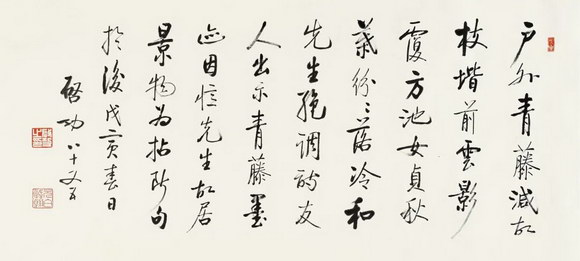 户外青藤減故
枝堦前雲影
覆方池女貞秋
葉紛〻落冷和
先生絕調詩友
人出示青藤墨
迹因憶先生故居
景物為拈句
於後戊寅春日
啓功八十又六